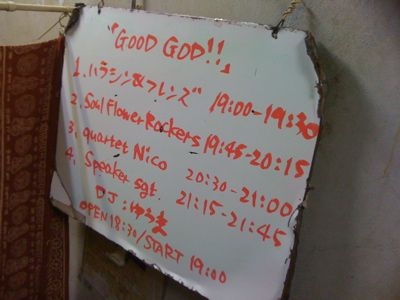 "GOOD GOD!!"
1. ハラシン&フレンズ 19:00-19:30
2. Soul Flower Rockers 19:45-20:15
3. quartet Nico 20:30-21:00
4. Speaker sgt. 21:15-21:45
DJ:ゆうき
OPEN 18:30/START 19:00